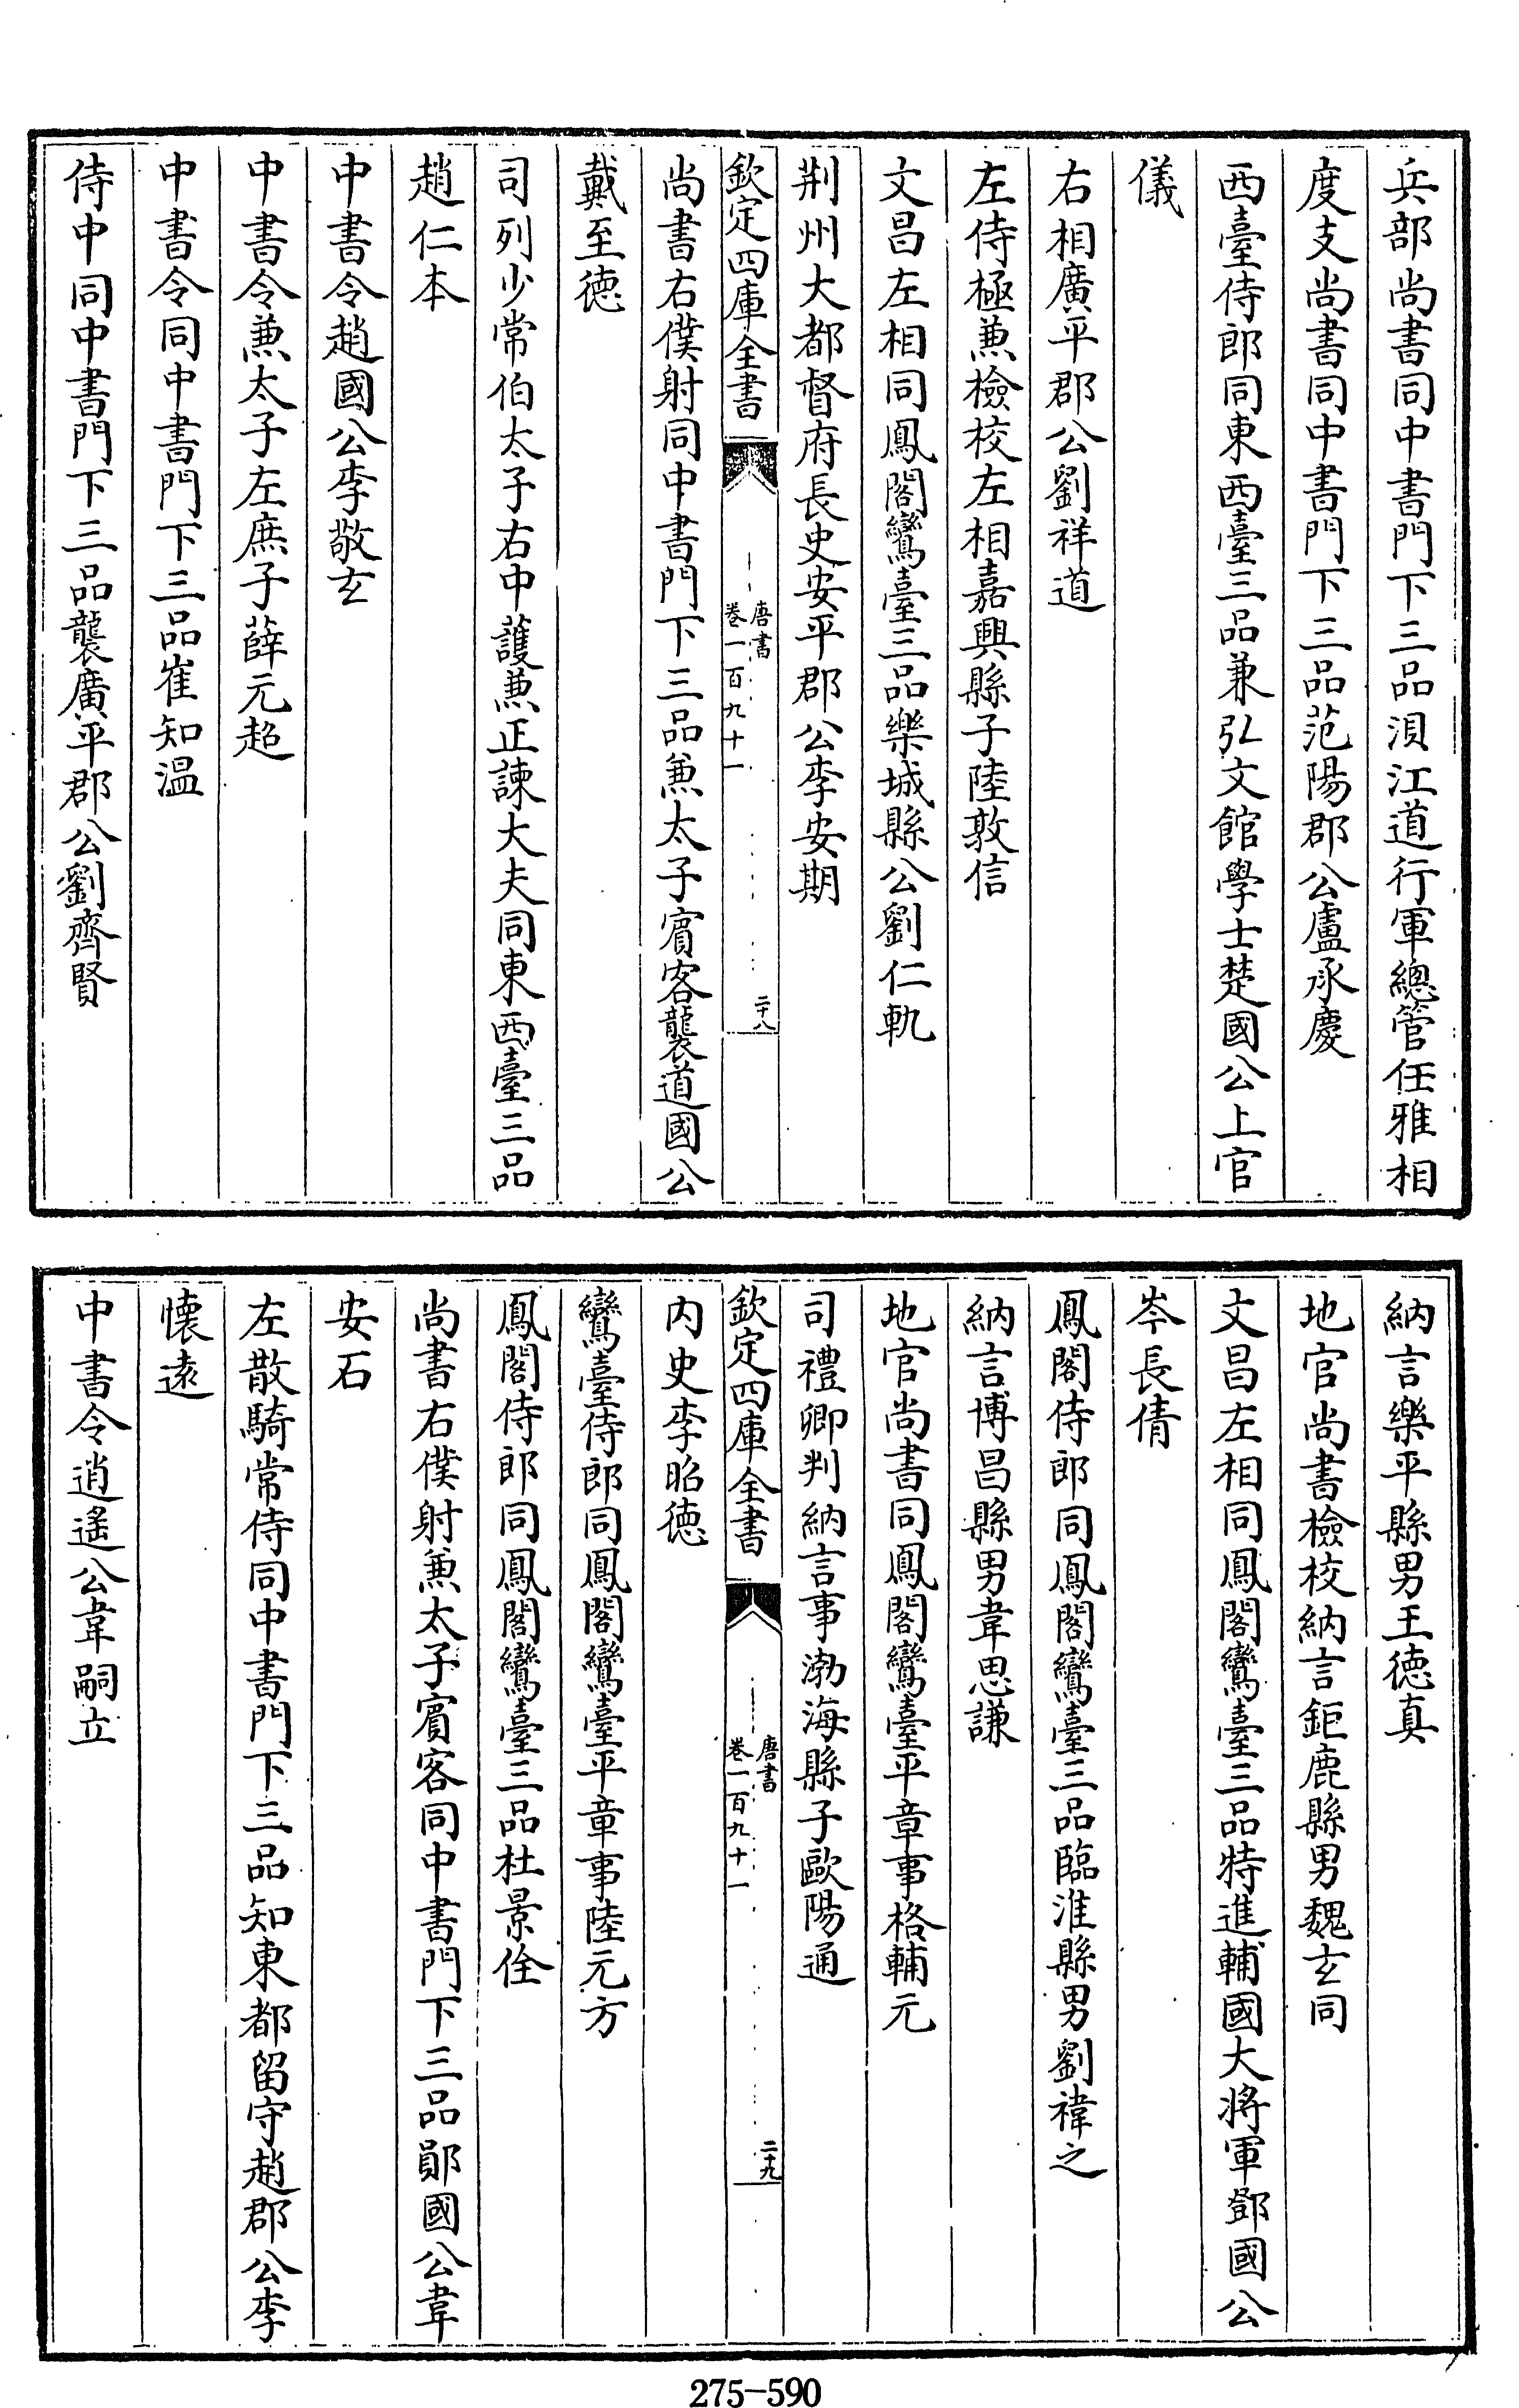 兵部尚書同中書門下三品浿江道行軍總管任雅相
度支尚書同中書門下三品范陽郡公盧承慶
西臺侍郎同東西臺三品兼弘文館學士楚國公上官
儀
右相廣平郡公劉祥道
左侍極兼檢校左相嘉興縣子陸敦信
文昌左相同鳳閣鸞臺三品樂城縣公劉仁軌
荆州大都督府長史安平郡公李安期
欽定四庫全書
唐書
卷一百九十一
二十八
尚書右僕射同中書門下三品兼太子賓客襲道國公
戴至德
司列少常伯太子右中護兼正諫大夫同東西臺三品
趙仁本
中書令趙國公李敬玄
中書令兼太子左庶子薛元超
中書令同中書門下三品崔知温
侍中同中書門下三品襲廣平郡公劉齊賢
納言樂平縣男王德真
地官尚書檢校納言鉅鹿縣男魏玄同
文昌左相同鳳閣鸞臺三品特進輔國大將軍鄧國公
岑長倩
鳳閣侍郎同鳳閣鸞臺三品臨淮縣男劉禕之
納言博昌縣男韋思謙
地官尚書同鳳閣鸞臺平章事格輔元
司禮卿判納言事渤海縣子歐陽通
欽定四庫全書
唐書
卷一百九十一
二十九
内史李昭德
鸞臺侍郎同鳳閣鸞臺平章事陸元方
鳳閣侍郎同鳳閣鸞臺三品杜景佺
尚書右僕射兼太子賓客同中書門下三品鄖國公韋
安石
左散騎常侍同中書門下三品知東都留守趙郡公李
懷遠
中書令逍遙公韋嗣立
275-590